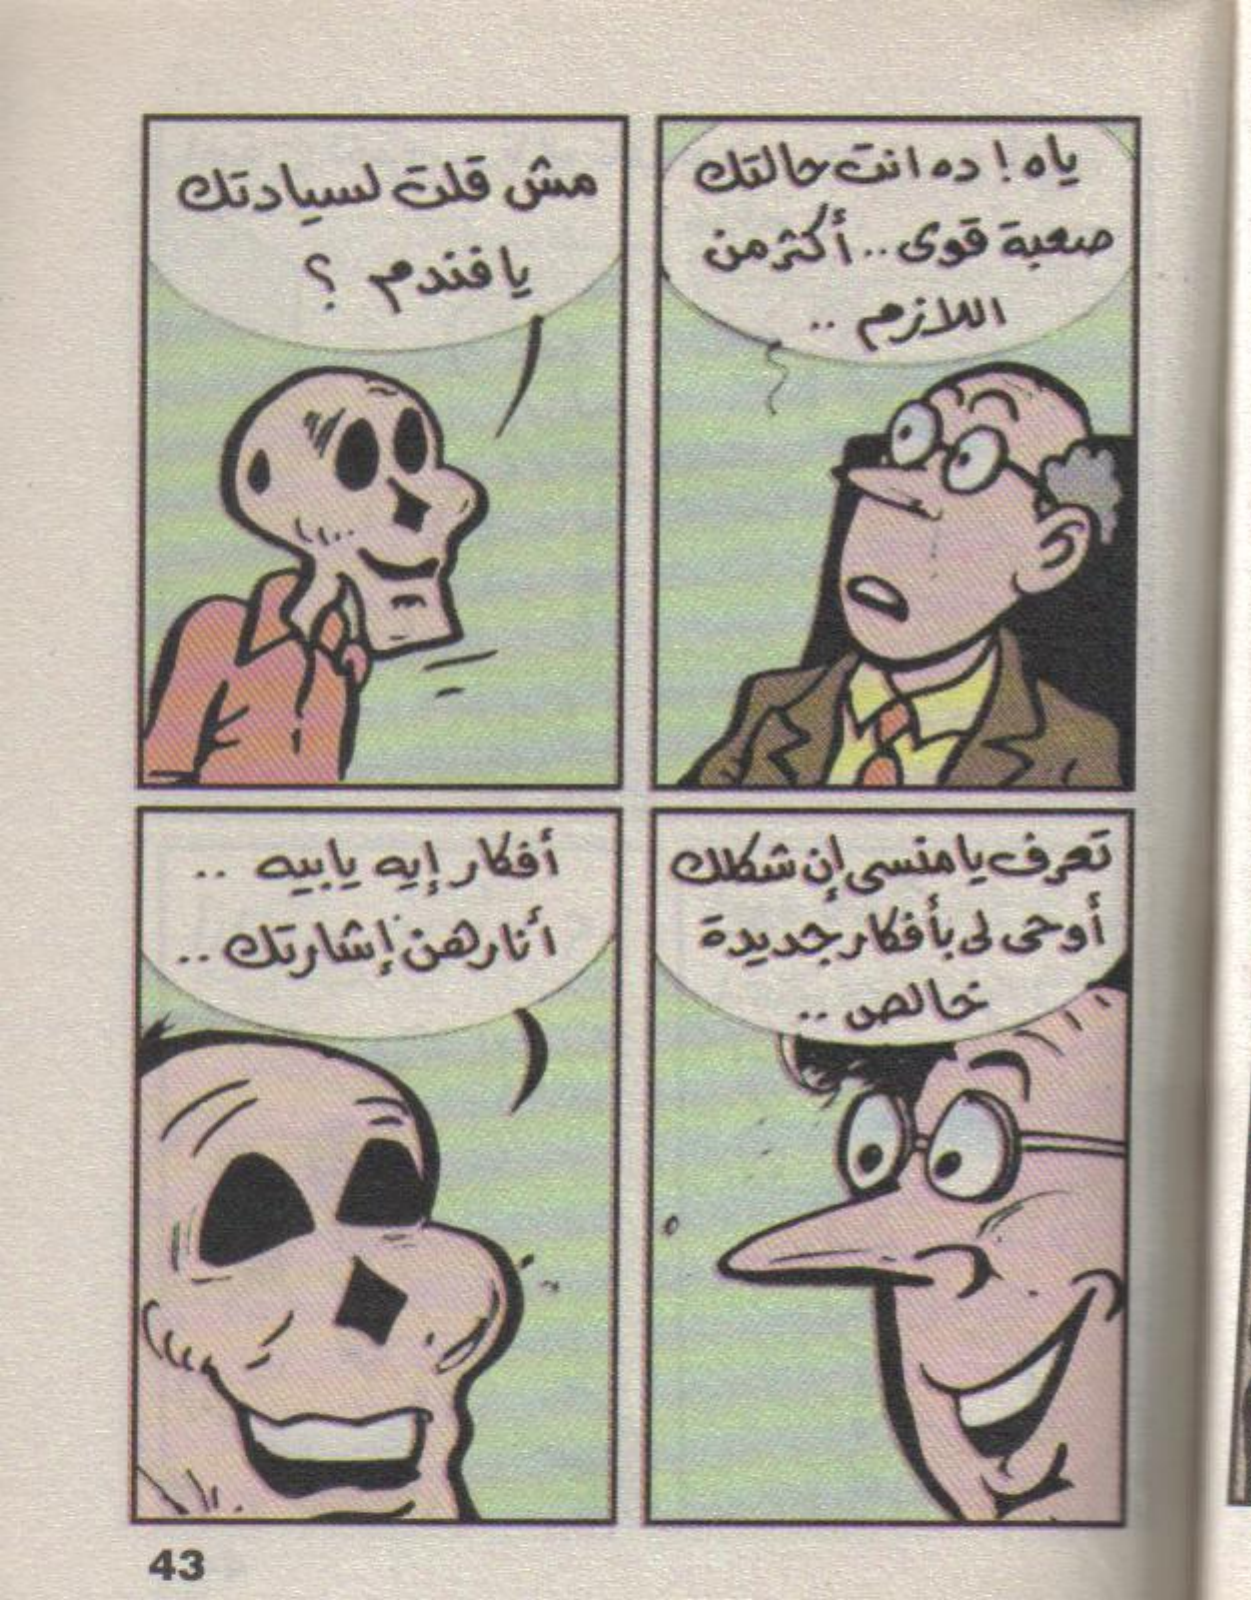 ياه! ده انت حالتك
صعبة قوى.. أكثر من
اللازم..
مش قلت لسيادتك
يا فندم؟
تعرف يا منسى إن شكلك
أوحى لى بأفكار جديدة
خالص..
أفكار إيه يا بيه..
أنا رهن إشارتك..
43